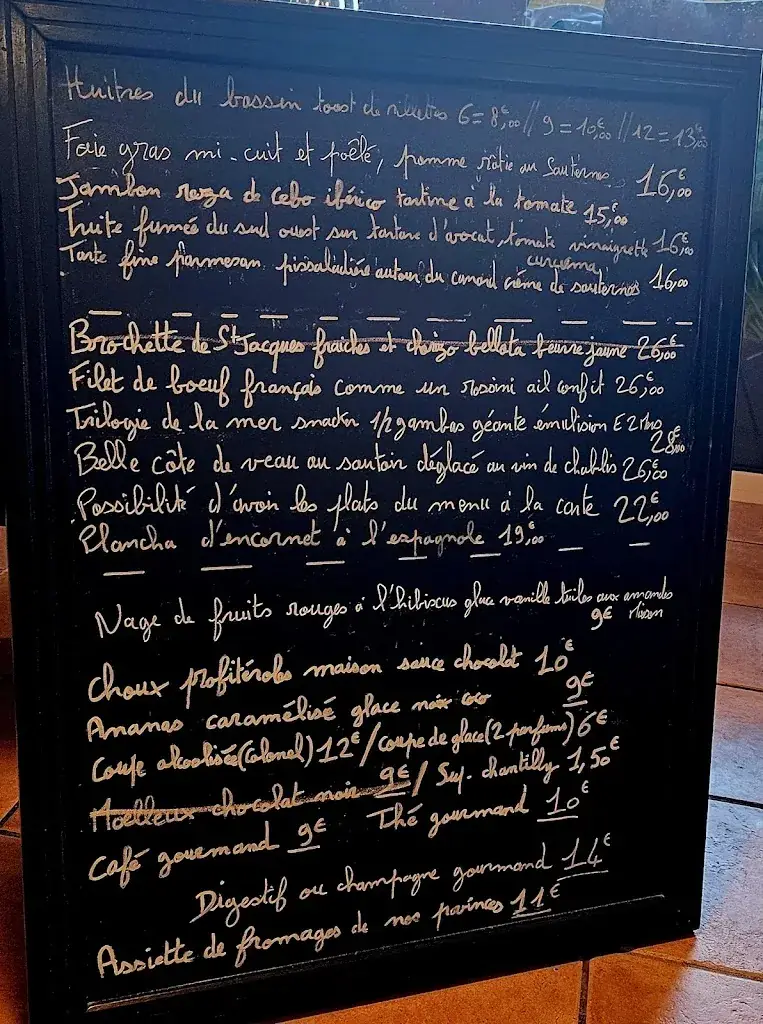 Huitres du bassin toast de rillettes 6=8,00€ // 9=10,00€ // 12=13,00€
Foie gras mi-cuit et poêlé, pomme rôtie au Sauternes 16,00€
Jambon de Cebo ibérico tartine à la tomate 15,00€
Truite fumée du sud ouest sur tartare d'avocat, tomate vinaigrette 16,00€
curcuma
Tarte fine parmesan pissaladière autour du canard crème de sauternes 16,00€
Brochette de St Jacques fraiches et chorizo bellota beurre jaune 26,00€
Filet de boeuf français comme un rossini ail confit 26,00€
Trilogie de la mer snackée 1/2 gambas géante émulsion
28,00€
Belle côte de veau au sautoir déglacé au vin de chablis 26,00€
Possibilité d'avoir les plats du menu à la carte 22,00€
Plancha d'encornet à l'espagnole 19,00€
Nage de fruits rouges à l'hibiscus glace vanille tuiles aux amandes
9€ maison
Choux profitéroles maison sauce chocolat 10€
Ananas caramélisé glace noix coco 9€
Coupe alcoolisée (Colonel) 12€ / coupe de glace (2 parfums) 6€
Moelleux chocolat noir 9€ / Sup. chantilly 1,50€
Café gourmand 9€ Thé gourmand 10€
Digestif ou champagne gourmand 14€
Assiette de fromages de nos provinces 11€